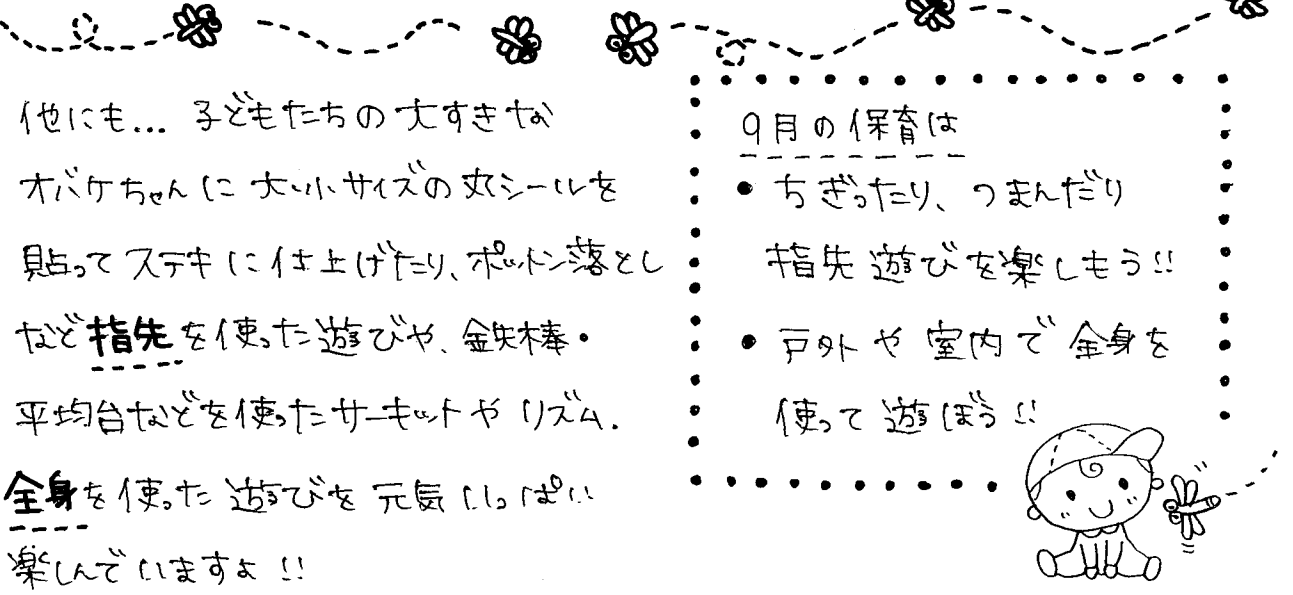 他にも... 子どもたちの大すきな
オバケちゃんに大小サイズの丸シールを
貼ってステキに仕上げたり、ポットン落とし
など指先を使った遊びや、鉄棒・
平均台などを使ったサーキットやリズム.
全身を使った遊びを元気いっぱい
楽しんでいますよ!!
9月の保育は
• ちぎったり、つまんだり
指先遊びを楽しもう!!
• 戸外や室内で全身を
使って遊ぼう!!